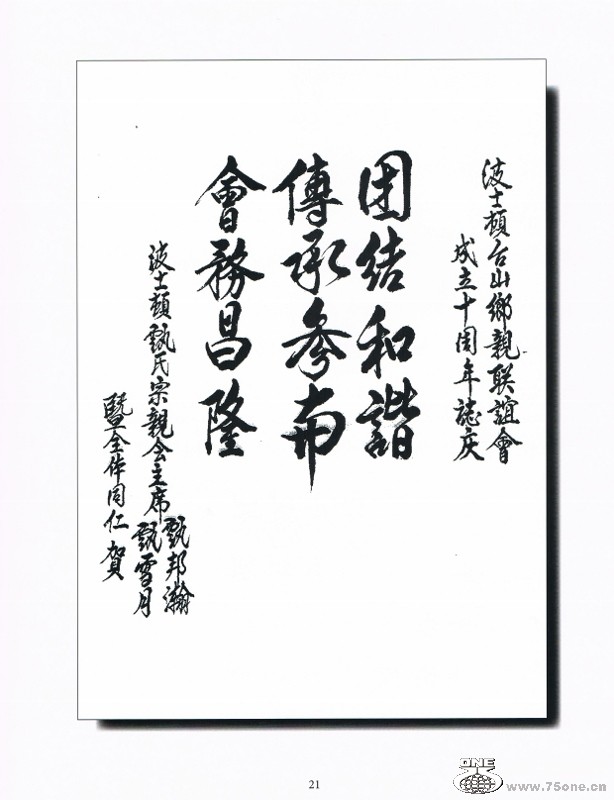 波士頓台山鄉親联誼會
成立十周年誌庆
团结和諧
傳承參南
會務昌隆
波士頓甄氏宗親会主席
甄邦瀚
甄雪月
暨全体同仁賀
21
ONE
www.75one.cn